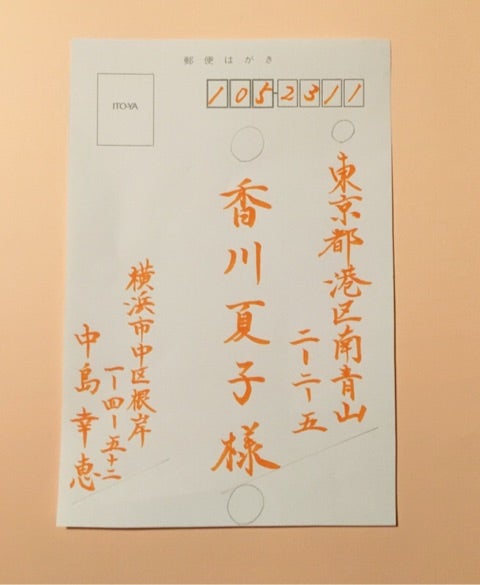 郵便はがき
ITO-YA
105-2311
東京都港区南青山
二ー二ー五
香川夏子様
横浜市中区根岸
一ー四ー五十二
中島幸恵